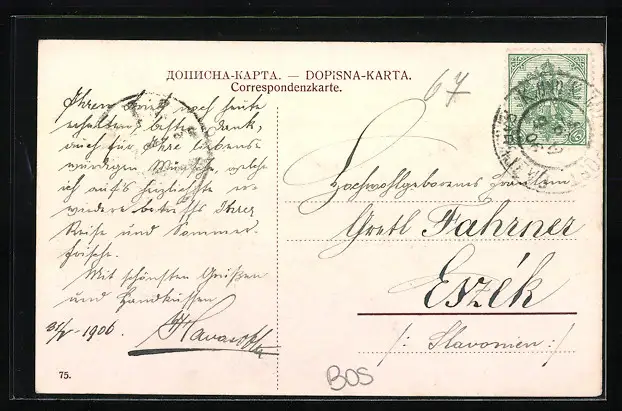 ДОПИСНА-КАРТА. — DOPISNA-KARTA.
Correspondenzkarte.
67
Ihren noch heute
erhalten, besten Dank,
auch für Ihre liebens-
würdigen Wünsche, welche
ich auf's herzlichste er-
widere betreffs Ihrer
Reise und Sommer-
frische.
Mit schönsten Grüßen
und Handküssen
1906.
75.
Hochwohlgeborenes Fräulein
Gretl Fahrner
Eszék
/: Slavonien :/
BOS